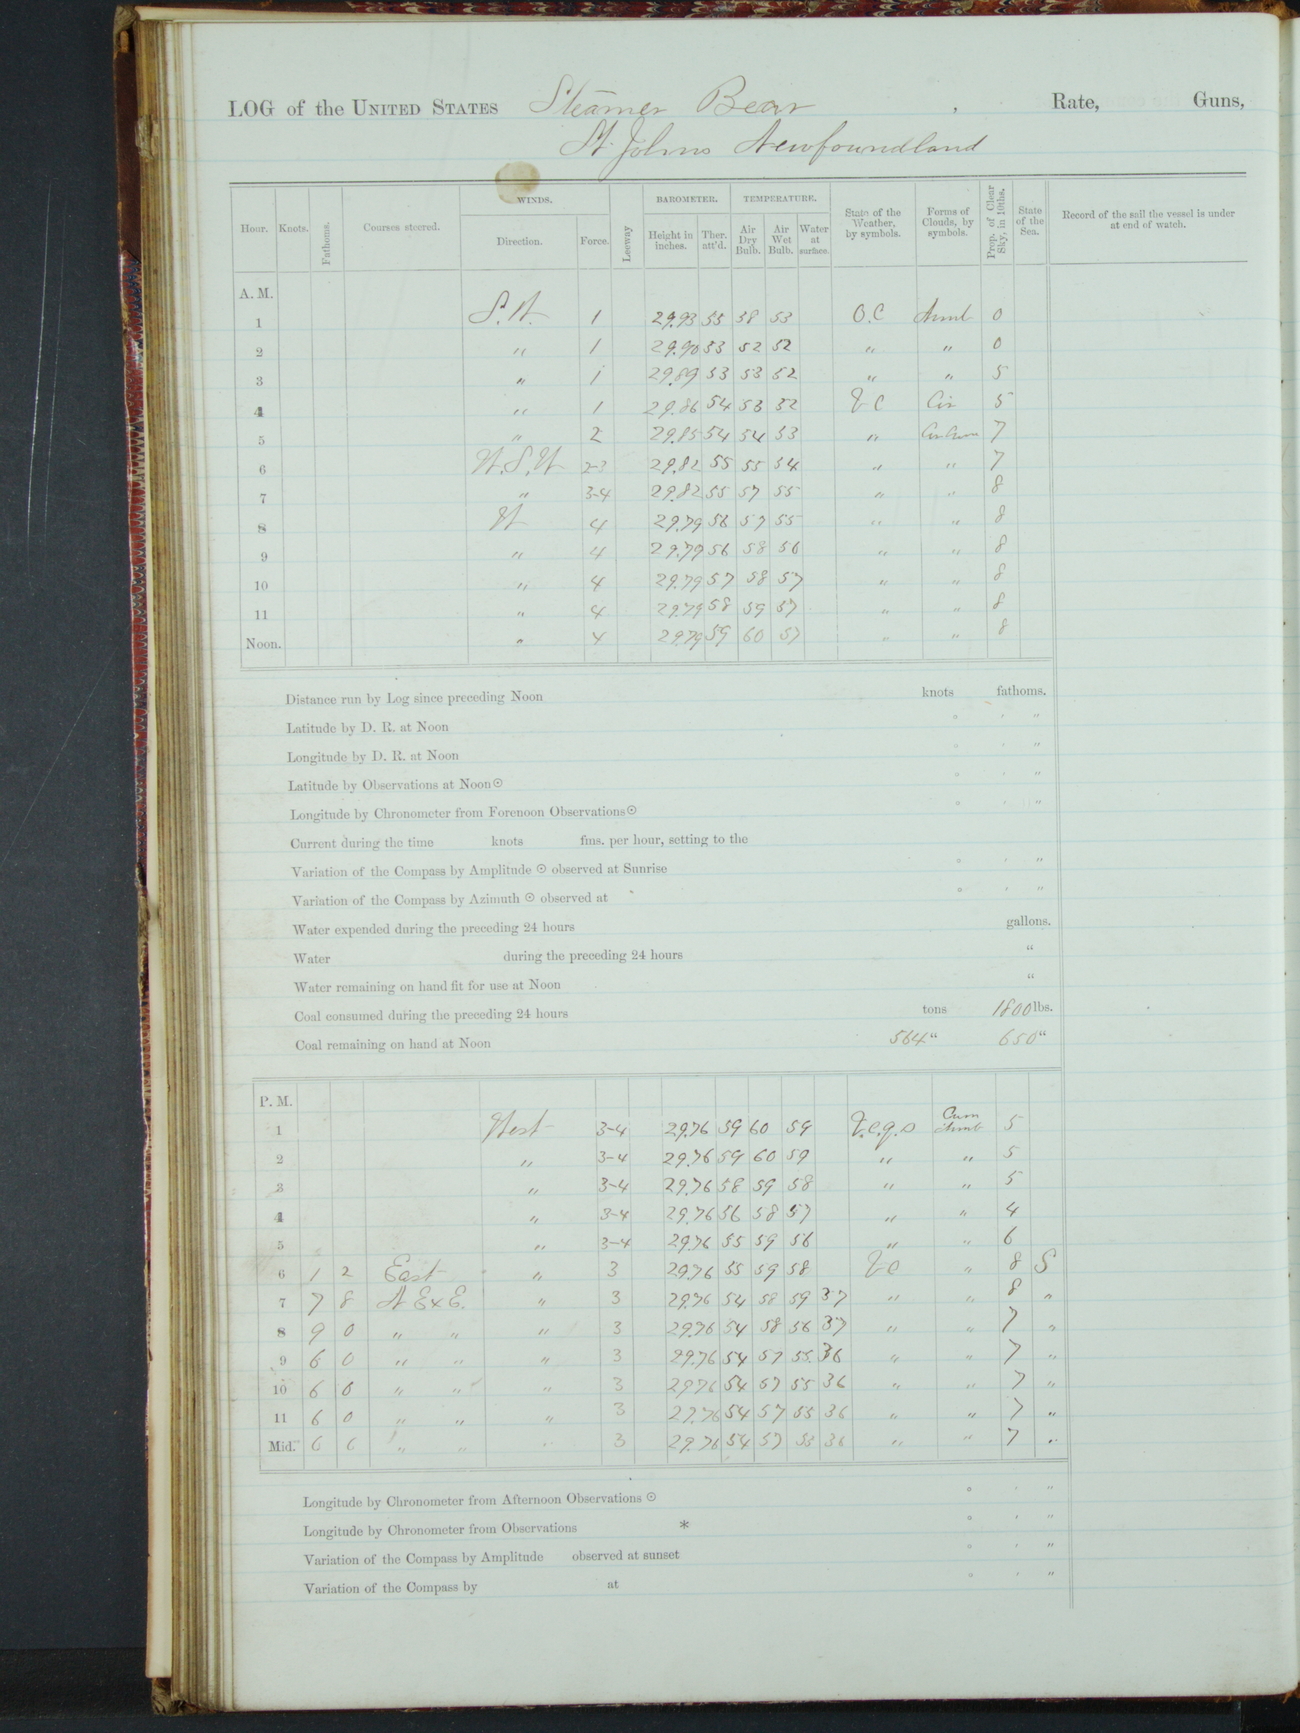 LOG of the UNITED STATES Steamer Bear , Rate, Guns,
St Johns Newfoundland
Hour. Knots. Fathoms. Courses steered. WINDS. Direction. Force. Leeway BAROMETER. Height in inches. Ther. att'd. TEMPERATURE. Air Dry Bulb. Air Wet Bulb. Water at surface. State of the Weather, by symbols. Forms of Clouds, by symbols. Prop. of Clear Sky, in 10ths. State of the Sea. Record of the sail the vessel is under at end of watch.
A. M.
1 S.W. 1 29.93 55 58 53 O.C 0
2 " 1 29.90 53 52 52 " " 0
3 " 1 29.89 53 53 52 " " 5
4 " 1 29.86 54 53 52 b c Cir 5
5 " 2 29.85 54 54 53 " Cir Cum 7
6 W.S.W 2-3 29.82 55 55 54 " " 7
7 " 3-4 29.82 55 57 55 " " 8
8 W 4 29.79 56 57 55 " " 8
9 " 4 29.79 56 58 56 " " 8
10 " 4 29.79 57 58 57 " " 8
11 " 4 29.79 58 59 57 " " 8
Noon. " 4 29.79 59 60 57 " " 8
Distance run by Log since preceding Noon knots fathoms.
Latitude by D. R. at Noon ° ' "
Longitude by D. R. at Noon ° ' "
Latitude by Observations at Noon ☉ ° ' "
Longitude by Chronometer from Forenoon Observations ☉ ° ' "
Current during the time knots fms. per hour, setting to the
Variation of the Compass by Amplitude ☉ observed at Sunrise ° ' "
Variation of the Compass by Azimuth ☉ observed at ° ' "
Water expended during the preceding 24 hours gallons.
Water during the preceding 24 hours "
Water remaining on hand fit for use at Noon "
Coal consumed during the preceding 24 hours tons 1800 lbs.
Coal remaining on hand at Noon 564 " 650 "
P. M.
1 West 3-4 29.76 59 60 59 b.c.q.s Cum Nimb 5
2 " 3-4 29.76 59 60 59 " " 5
3 " 3-4 29.76 58 59 58 " " 5
4 " 3-4 29.76 56 58 57 " " 4
5 " 3-4 29.76 55 59 56 " " 6
6 1 2 East " 3 29.76 55 59 58 b c " 8 S
7 7 8 N E x E. " 3 29.76 54 58 59 37 " " 8 "
8 9 0 " " " 3 29.76 54 58 56 37 " " 7 "
9 6 0 " " " 3 29.76 54 57 55 36 " " 7 "
10 6 0 " " " 3 29.76 54 57 55 36 " " 7 "
11 6 0 " " " 3 29.76 54 57 55 36 " " 7 "
Mid. 6 6 " " " 3 29.76 54 57 55 36 " " 7 "
Longitude by Chronometer from Afternoon Observations ☉ ° ' "
Longitude by Chronometer from Observations * ° ' "
Variation of the Compass by Amplitude observed at sunset ° ' "
Variation of the Compass by at ° ' "